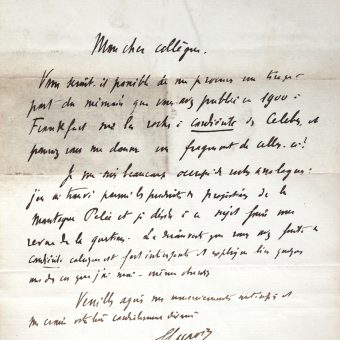 Mon cher collègue.
Vous serait-il possible de me procurer un tirage
part du mémoire que vous avez publié en 1900 à
Frankfurt sur les roches à cordiérite de Celebes et
pourriez vous me donner un fragment de celles-ci?
Je me suis beaucoup occupé de roches analogues:
j'en ai trouvé parmi les produits de projection de la
Montagne Pelée et je désire à ce sujet faire une
revue de la question. Le mémoire que vous avez fait
cordiérite est fort intéressant et explique
de ce que j'ai moi-même observé
Veuillez agréer mes remerciements anticipés et
me croire votre bien cordialement dévoué